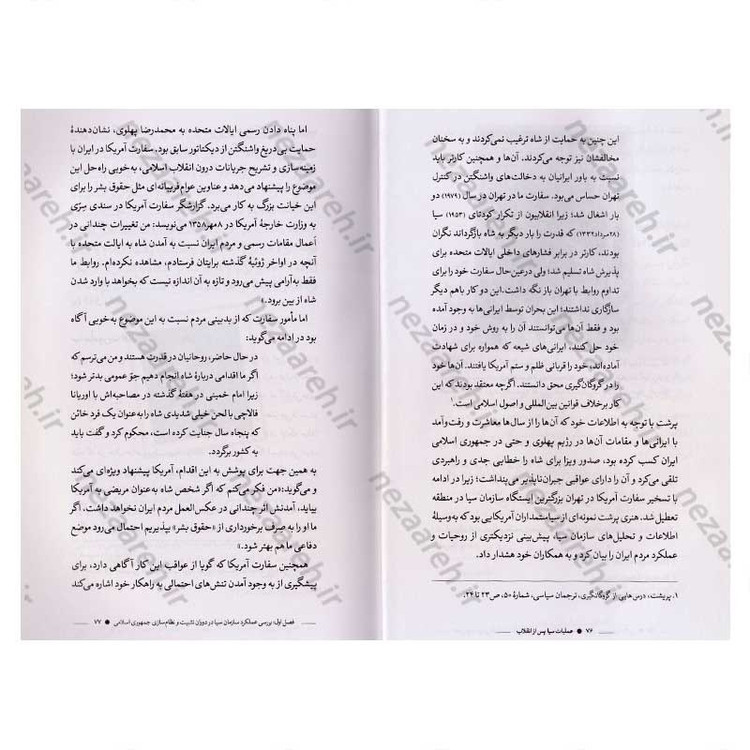 این چنین به حمایت از شاه ترغیب نمی‌کردند و به سخنان
مخالفشان نیز توجه می‌کردند. آن‌ها و همچنین کارتر باید
نسبت به باور ایرانیان به دخالت‌های واشنگتن در کنترل
تهران حساس می‌بود. سفارت ما در تهران در سال (۱۹۷۹) دو
بار اشغال شد؛ زیرا انقلابیون از تکرار کودتای (۱۹۵۳) سیا
(۲۸مرداد۱۳۳۲) که قدرت را بار دیگر به شاه بازگرداند نگران
بودند، کارتر در برابر فشارهای داخلی ایالات متحده برای
پذیرش شاه تسلیم شد؛ ولی درعین‌حال سفارت خود را برای
تداوم روابط با تهران باز نگه داشت.این دو کار باهم دیگر
سازگاری نداشتند؛ این بحران توسط ایرانی‌ها به وجود آمده
بود و فقط آن‌ها می‌توانستند آن را به روش خود و در زمان
خود حل کنند، ایرانی‌های شیعه که همواره برای شهادت
آماده‌اند، خود را قربانی ظلم و ستم آمریکا یافتند. آن‌ها خود
را در گروگان‌گیری محق دانستند. اگرچه معتقد بودند که این
کار برخلاف قوانین بین‌المللی و اصول اسلامی است.۱
پرشت با توجه به اطلاعات خود که آن‌ها را از سال‌ها معاشرت و رفت‌وآمد
با ایرانی‌ها و مقامات آن‌ها در رژیم پهلوی و حتی در جمهوری اسلامی
ایران کسب کرده بود، صدور ویزا برای شاه را خطایی جدی و راهبردی
تلقی می‌کرد و آن را دارای عواقبی جبران‌ناپذیر می‌پنداشت؛ زیرا در ادامه
با تسخیر سفارت آمریکا در تهران بزرگترین ایستگاه سازمان سیا در منطقه
تعطیل شد. هنری پرشت نمونه‌ای از سیاستمداران آمریکایی بود که به‌وسیلهٔ
اطلاعات و تحلیل‌های سازمان سیا، پیش‌بینی نزدیکتری از روحیات و
عملکرد مردم ایران را بیان کرد و به همکاران خود هشدار داد.
۱. پریشت، درس‌هایی از گروگانگیری، ترجمان سیاسی، شمارهٔ ۵۰، ص۲۳ تا ۲۴.
۷۶ ● عملیات سیا پس از انقلاب
اما پناه دادن رسمی ایالات متحده به محمدرضا پهلوی، نشان‌دهندهٔ
حمایت بی‌دریغ واشنگتن از دیکتاتور سابق بود. سفارت آمریکا در ایران با
زمینه‌سازی و تشریح جریانات درون انقلاب اسلامی، به‌خوبی راه‌حل این
موضوع را پیشنهاد می‌دهد و عناوین عوام‌فریبانه‌ای مثل حقوق بشر را برای
این خیانت بزرگ به کار می‌برد. گزارشگر سفارت آمریکا در سندی سرّی
به وزارت خارجهٔ آمریکا در ۸مهر۱۳۵۸ می‌نویسد: من تغییرات چندانی در
اعمال مقامات رسمی و مردم ایران نسبت به آمدن شاه به ایالت متحده با
آنچه در اواخر ژوئیهٔ گذشته برایتان فرستادم، مشاهده نکرده‌ام. روابط ما
فقط به‌آرامی پیش می‌رود و تازه به آن اندازه نیست که بخواهد با وارد شدن
شاه از بین برود.»
اما مأمور سفارت که از بدبینی مردم نسبت به این موضوع به‌خوبی آگاه
بود در ادامه می‌گوید:
در حال حاضر، روحانیان در قدرت هستند و من می‌ترسم که
اگر ما اقدامی دربارهٔ شاه انجام دهیم جوّ عمومی بدتر شود؛
زیرا امام خمینی در هفتهٔ گذشته در مصاحبه‌اش با اوریانا
فالاچی با لحن خیلی شدیدی شاه را به‌عنوان یک فرد خائن
که پنجاه سال جنایت کرده است، محکوم کرد و گفت باید
به کشور برگردد.
به همین جهت برای پوشش به این اقدام، آمریکا پیشنهاد ویژه‌ای می‌کند
و می‌گوید:«من فکر می‌کنم که اگر شخص شاه به‌عنوان مریضی به آمریکا
بیاید، آمدنش اثر چندانی در عکس العمل مردم ایران نخواهد داشت. اگر
ما او را به صرف برخورداری از «حقوق بشر» بپذیریم احتمال می‌رود موضع
دفاعی ما هم بهتر شود.»
همچنین سفارت آمریکا که گویا از عواقب این کار آگاهی دارد، برای
پیشگیری از به وجود آمدن تنش‌های احتمالی به راهکار خود اشاره می‌کند
فصل اول: بررسی عملکرد سازمان سیا در دوران تثبیت و نظام سازی جمهوری اسلامی ● ۷۷
nezaareh.ir
nezaareh.ir
nezaareh.ir
nezaareh.ir
nezaareh.ir
nezaareh.ir
nezaareh.ir
nezaareh.ir